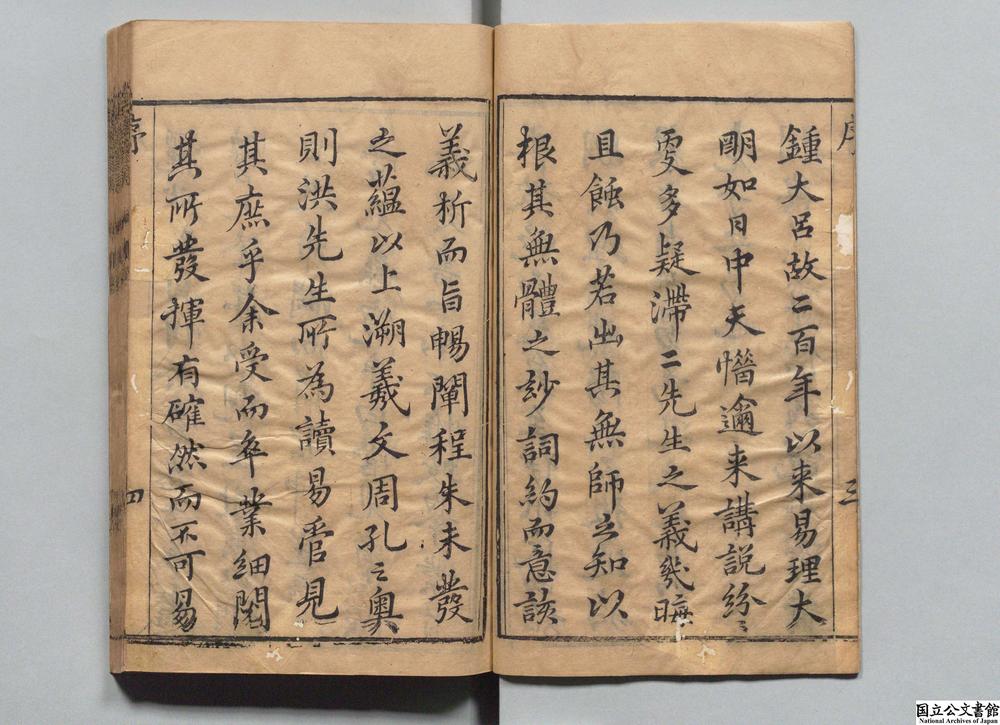 序
三
鍾大呂故二百年以來易理大
明如日中天懵邇來講說紛〻
更多疑滯二先生之義幾晦
且蝕乃若出其無師之知以
根其無體之玅詞約而意該
義析而旨暢闡程朱未發
之蘊以上溯羲文周孔之奧
則洪先生所為讀易管見
其庶乎余受而卒業細閱
其所發揮有確然而不可易
序
四
国立公文書館
National Archives of Japan